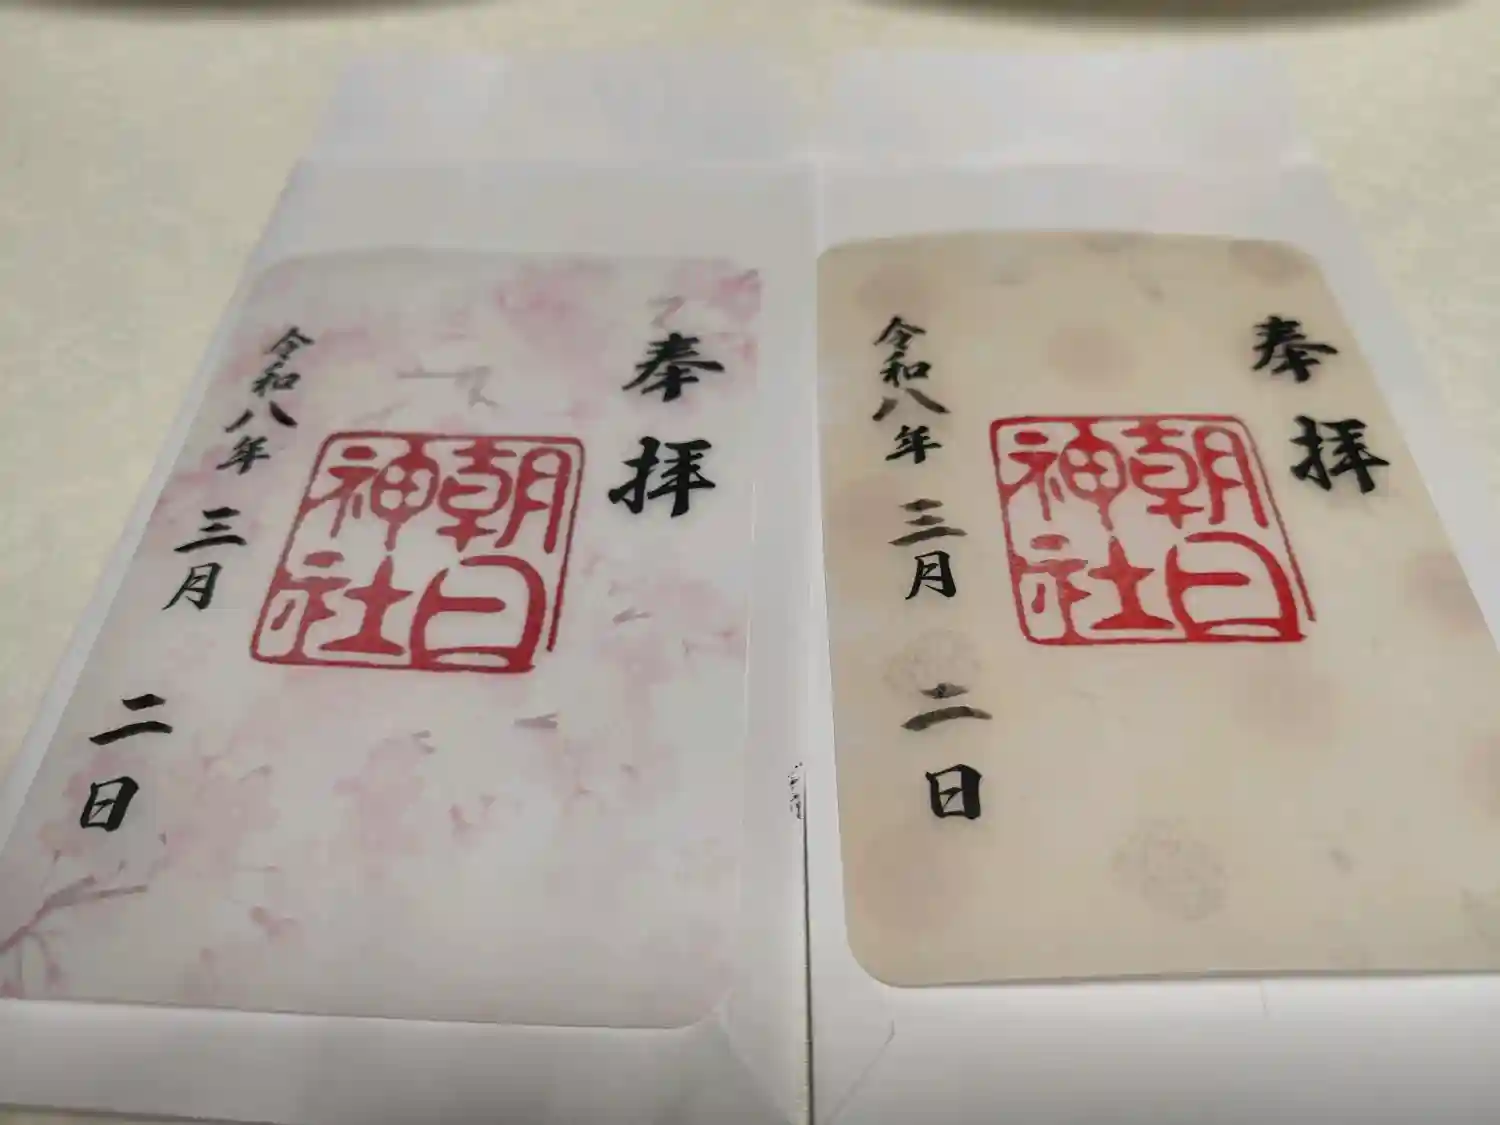 奉拝
朝日神社
令和八年三月二日
奉拝
朝日神社
令和八年三月二日